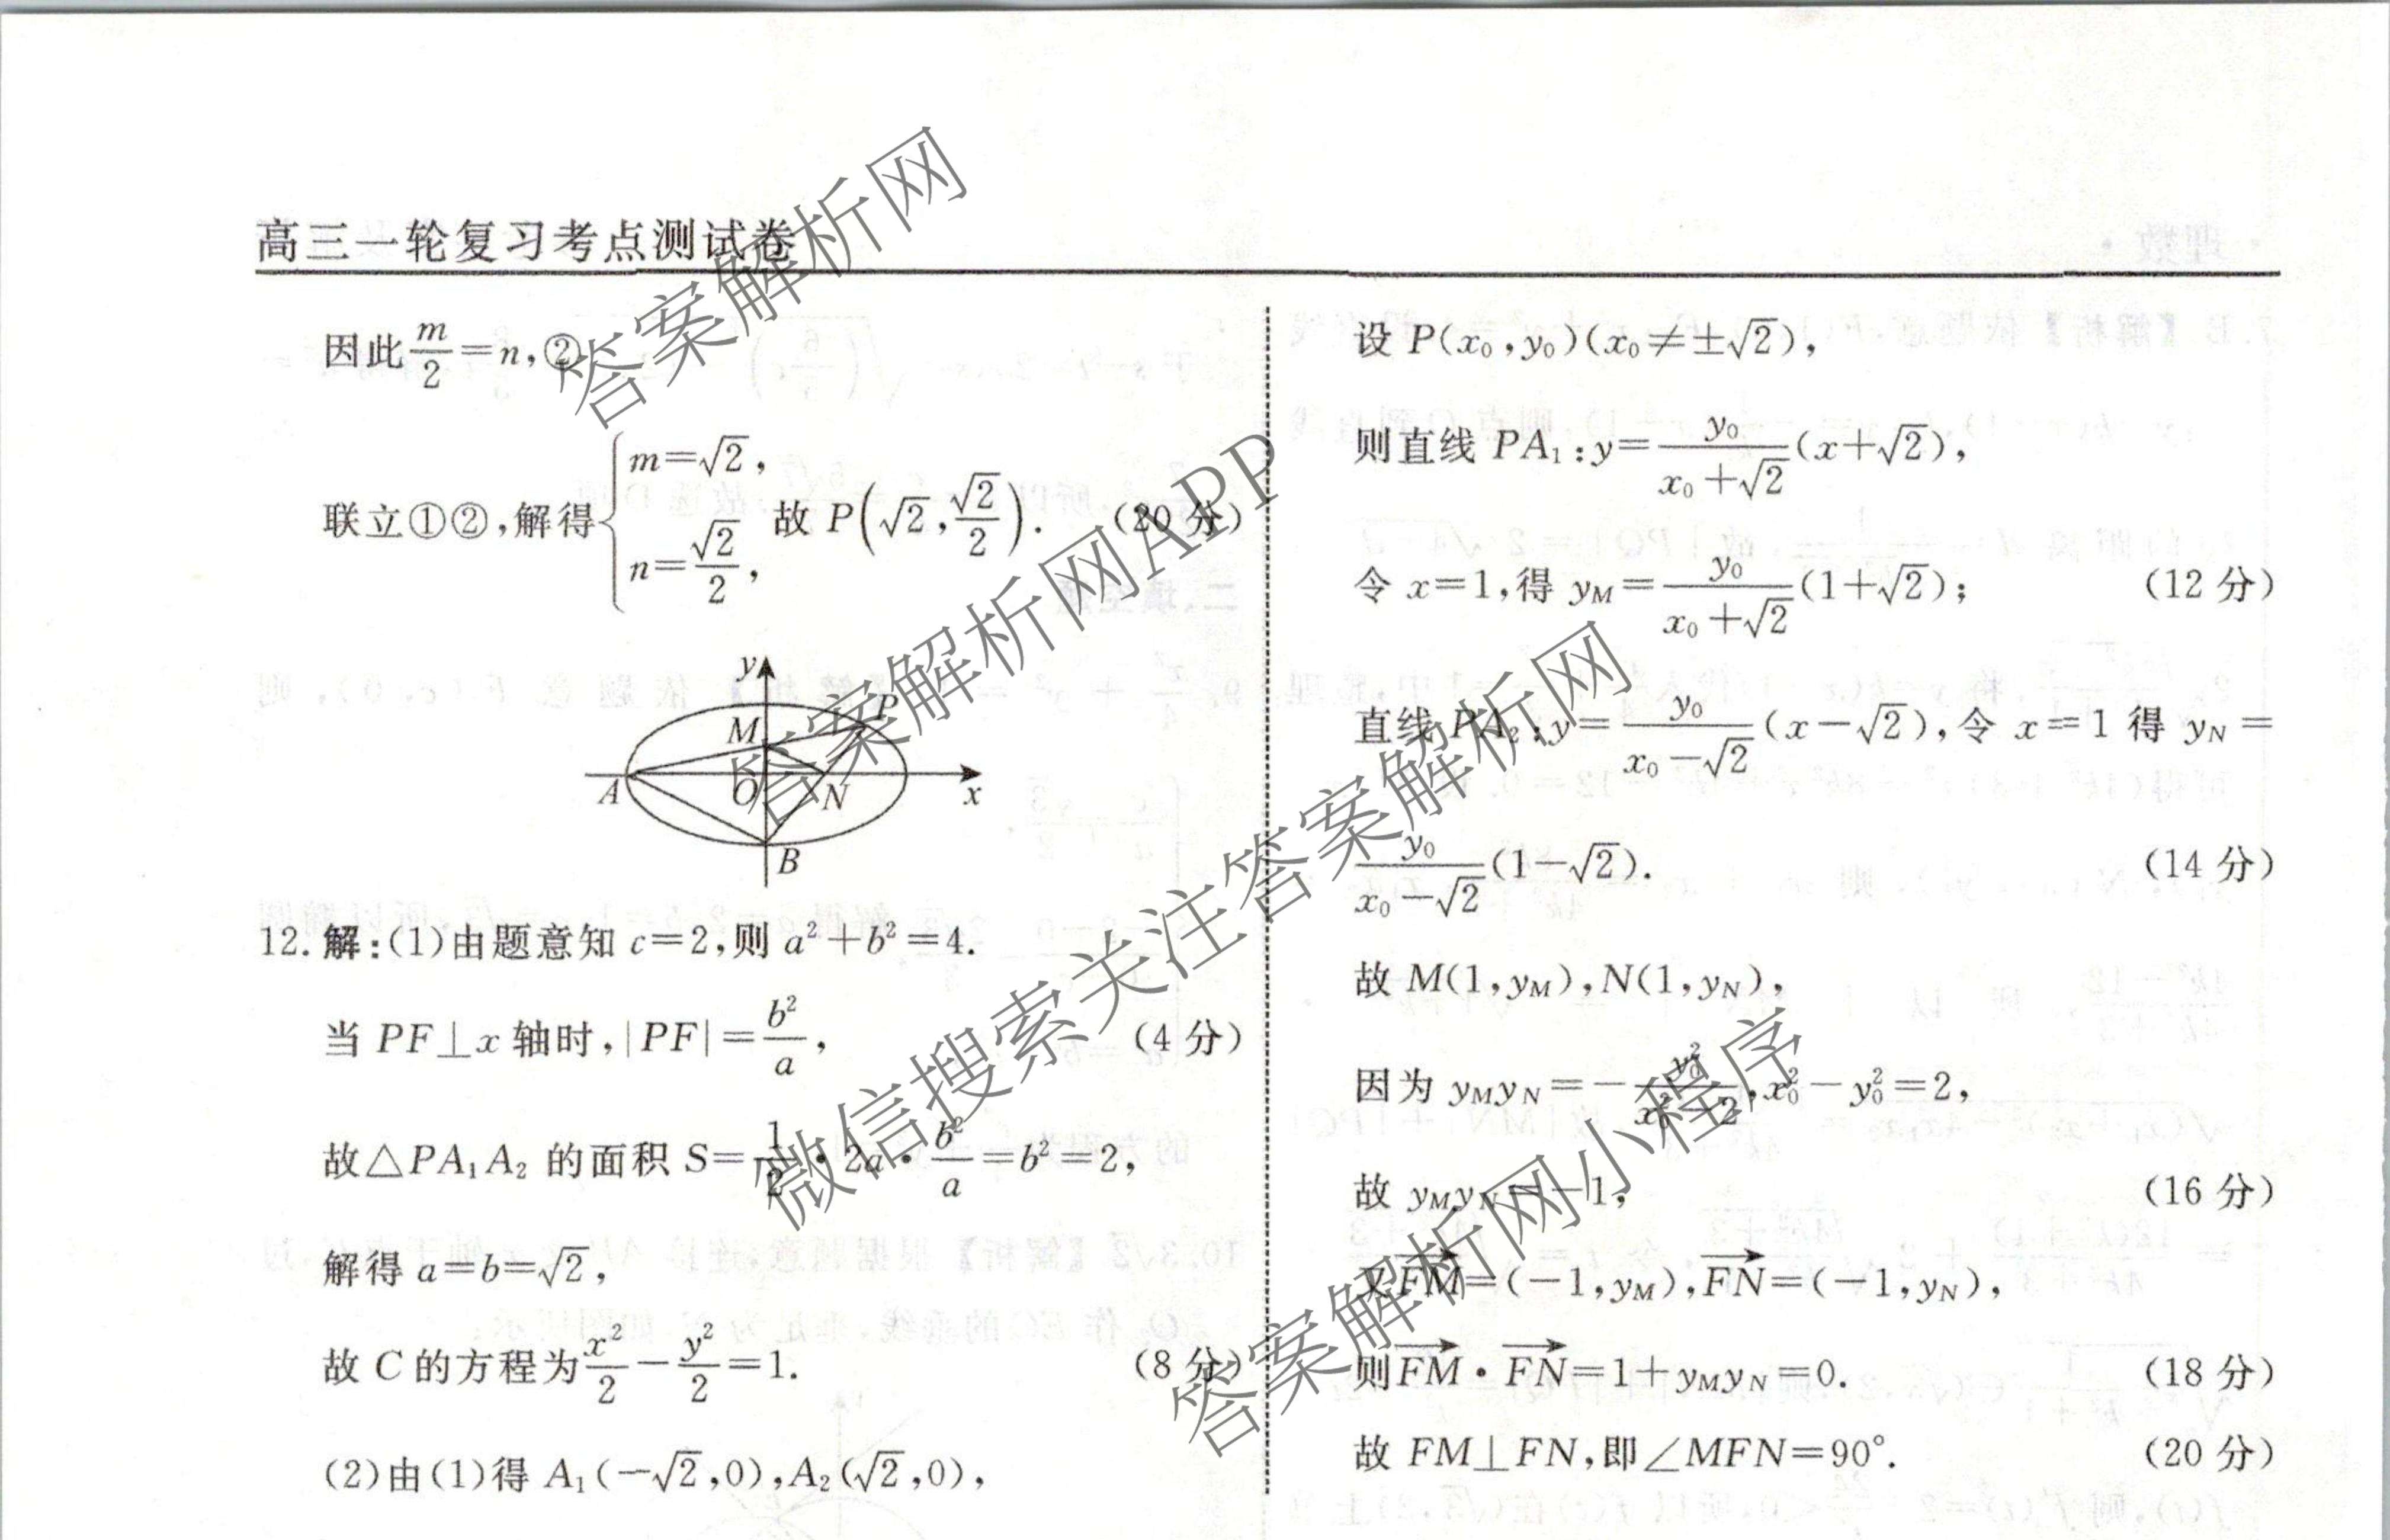 高三一轮复习考点测试卷
因此 m/2=n,②
联立①②,解得{m=√2, n=√2/2, 故 P(√2,√2/2). (20 分)
y
M
P
A
O
N
x
B
12. 解:(1)由题意知 c=2,则 a²+b²=4.
当 PF⊥x 轴时,|PF|=b²/a, (4 分)
故△PA₁A₂ 的面积 S=1/2·2a·b²/a=b²=2,
解得 a=b=√2,
故 C 的方程为 x²/2-y²/2=1. (8 分)
(2)由(1)得 A₁(-√2,0),A₂(√2,0),
设 P(x₀,y₀)(x₀≠±√2),
则直线 PA₁:y=y₀/(x₀+√2)(x+√2),
令 x=1,得 y_M=y₀/(x₀+√2)(1+√2); (12 分)
直线 PA₂:y=y₀/(x₀-√2)(x-√2),令 x=1 得 y_N=
y₀/(x₀-√2)(1-√2). (14 分)
故 M(1,y_M),N(1,y_N),
因为 y_My_N=-y₀²/(x₀²-2),x₀²-y₀²=2,
故 y_My_N=-1, (16 分)
又FM→=(-1,y_M),FN→=(-1,y_N),
则FM→·FN→=1+y_My_N=0. (18 分)
故 FM⊥FN,即∠MFN=90°. (20 分)
答案解析网
答案解析网APP
微信搜索关注答案解析网
答案解析网小程序